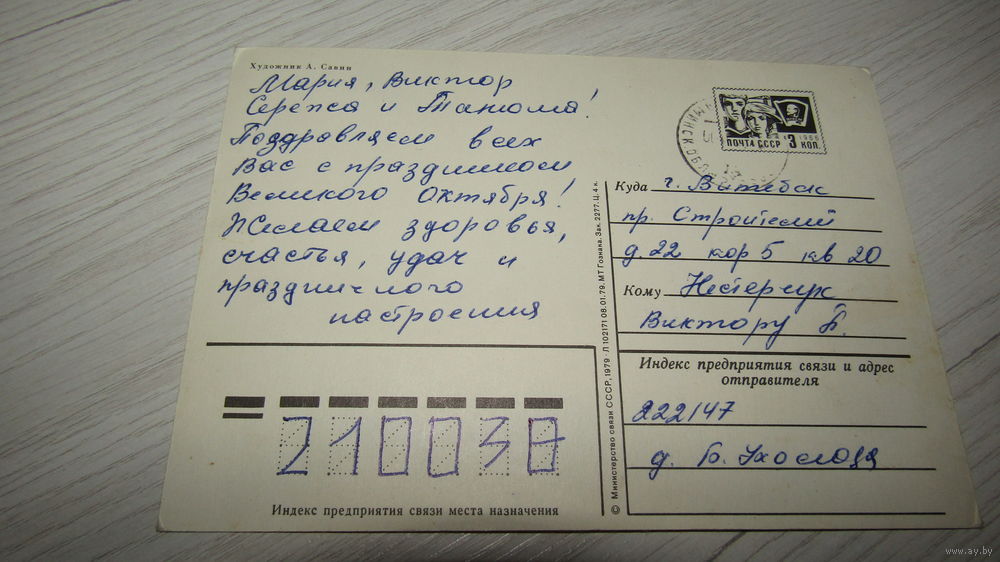 Художник А. Савин
Мария, Виктор
Сережа и Танюша!
Поздравляем всех
Вас с праздником
Великого Октября!
Желаем здоровья,
счастья, удач и
праздничного
настроения
1966
ПОЧТА СССР 3 КОП.
Куда г. Витебск
пр. Строителей
д. 22 кор 5 кв 20
Кому Нестерчук
Виктору Б.
Индекс предприятия связи и адрес
отправителя
222147
д. Б. Ухолода
210038
Индекс предприятия связи места назначения
© Министерство связи СССР, 1979 · Л 102171 08.01.79. МТ Гознака. Зак. 2277. Ц. 4 к.
www.ay.by